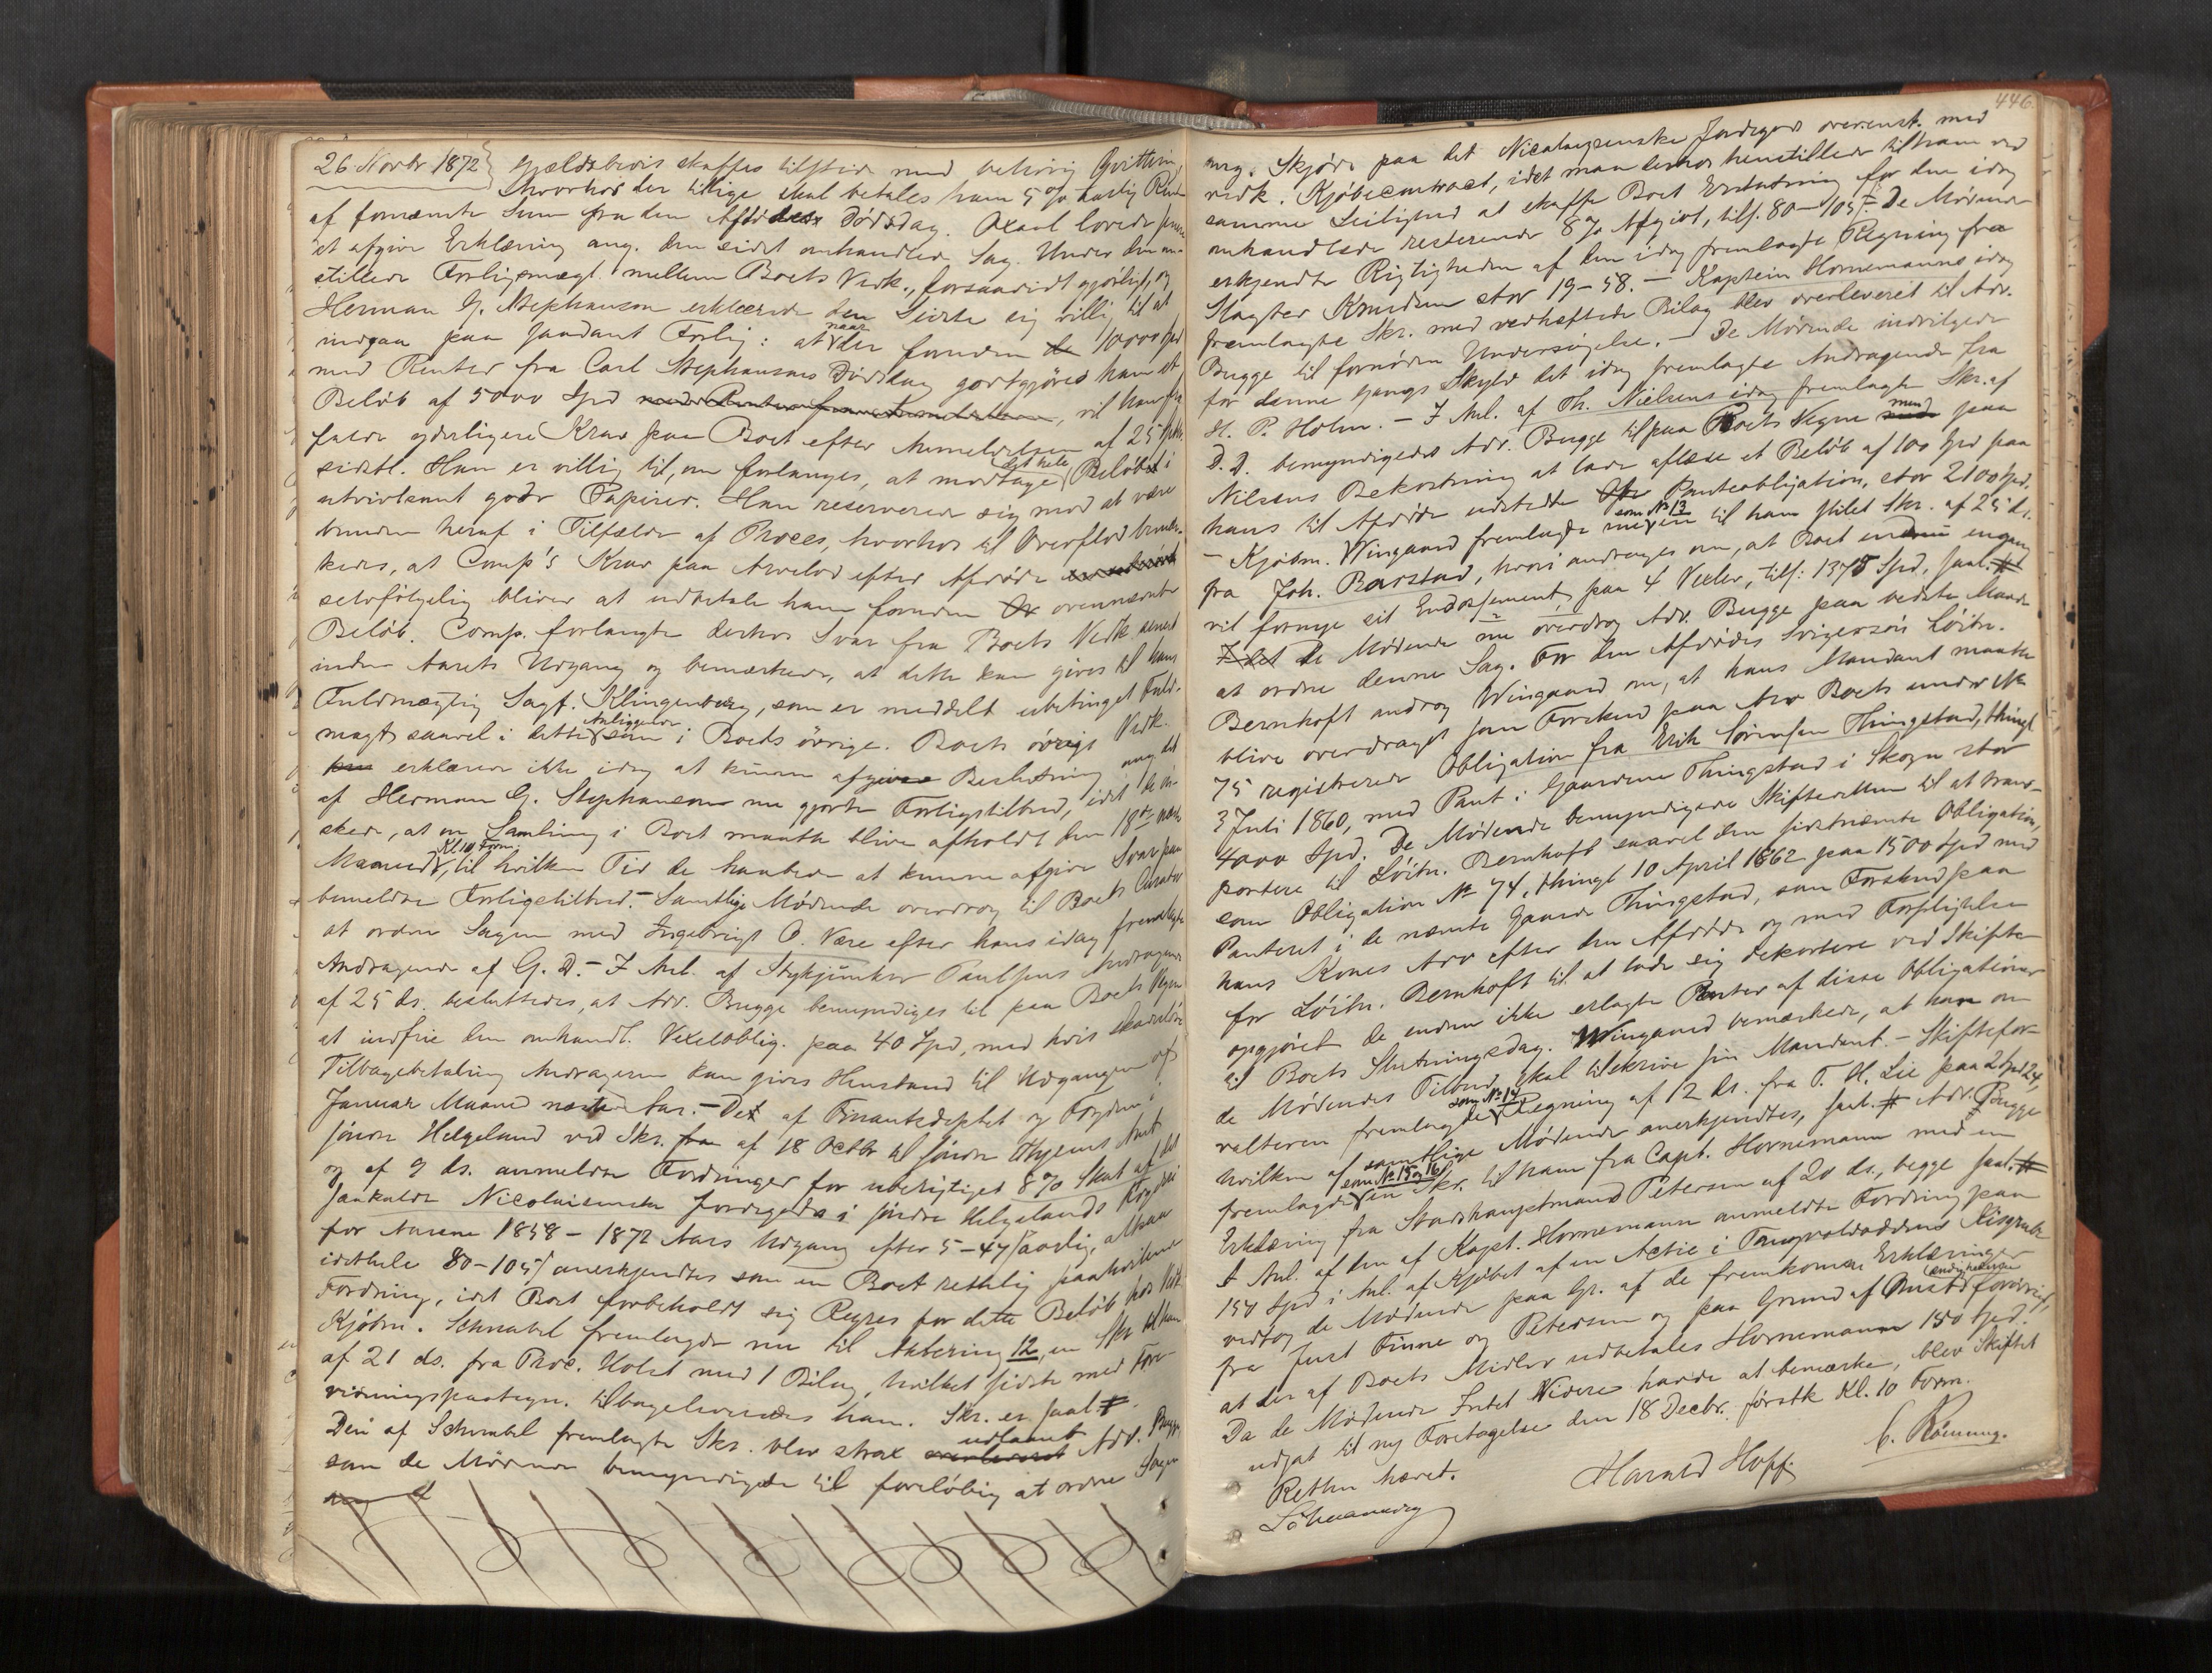 26 Novbr 1872 Gjældsbevis skaffes tilstede med behørig Qvittering,
hvorhos der tillige skal betales ham 5 % aarlig Rente
af fornævnte Sum fra den Afdødes Dødsdag. Axaul lovede
at afgive Erklæring ang. den sidst omhandlede Sag. Under den an-
stillede Forligsmægl. mellem Boets Vedk., forsaavidt gjørligt, og
Herman G. Stephansen erklærede den Sidste sig villig til at
indgaa paa saadant Forlig: at naar der foruden de 10000 Spd
med Renter fra Carl Stephansens Dødsdag godtgjøres ham et
Beløb af 5000 Spd med Renter fra, vil han fra
falde yderligere Krav paa Boet efter Anmeldelsen af 25
sidstl. Han er villig til, om forlanges, at modtage det hele Beløb i
utvivlsomt gode Papirer. Han reserverede sig mod at være
bunden heraf i Tilfælde af Proces, hvorhos til Overflod bemær-
kedes, at Comp's Krav paa Arvelod efter Afdøde
selvfølgelig bliver at udbetale ham foruden ovennævnte
Beløb. Comp. forlangte derhos Svar fra Boets Vedk. senest
inden Aarets Udgang og bemærkede, at dette kan gives til hans
Fuldmægtig Sagf. Klingenberg, som er meddelt ubetinget Fuld-
magt saavel i dette Anliggende som i Boets øvrige. Boets øvrige Vedk.
erklærede ikke idag at kunne afgive Beslutning ang. det
af Herman G. Stephansen nu gjorte Forligstilbud, idet de øn-
skede, at en Samling i Boet maatte blive afholdt den 18de næste
Maaned Kl. 10 Form., til hvilken Tid de haabede at kunne afgive Svar paa
bemeldte Forligstilbud. – Samtlige Mødende overdrog til Boets Curator
at ordne Sagen med Ingebrigt O. Være efter hans idag fremlagte
Andragende af G. D. – I Anl. af Stykjunker Paulsens Andragende
af 25 ds. besluttedes, at Adv. Bugge bemyndiges til paa Boets Vegne
at indfrie den omhandl. Vexeloblig. paa 40 Spd, med hvis skadesløse
Tilbagebetaling Andrageren kan gives Henstand til Udgangen af
Januar Maaned næste Aar. – Det af Finantsdeptet og Fogden i
søndre Helgeland ved Skr. fra af 18 Octbr til søndre Thjems Amt
og af 9 ds. anmeldte Fordringer for uberigtiget 8 % Skat af det
saakaldte Nicolaisenske Jordegods i søndre Helgelands Fogderi
for Aarene 1858 – 1872 Aars Udgang efter 5 – 47 ß aarlig, altsaa
idethele 80 – 105 ß anerkjendtes som en Boet retslig paahvilende
Fordring, idet Boet forbeholdt sig Regres for dette Beløb hos Vedk.
Kjøbm. Schnabel fremlagde nu til Aktering 12, en Skr. til ham
af 21 ds. fra Proc. Holst med 1 Bilag, hvilket sidste med Fore-
visningspaategn. tilbageleveredes ham. Skr. er saal. #
Den af Schnabel fremlagte Skr. blev strax overleveret udlaant Adv. Bugge
som de Mødende bemyndigede til foreløbig at ordne Sagen
446.
ang. Skjøde paa det Nicolaysenske Jordegods overenst. med
vedk. Kjøbecontract, idet man derhos henstillede til ham ved
samme Leilighed at skaffe Boet Erstatning for den idag
omhandlede resterende 8 % Afgivt, tils. 80 – 105 ß – De Mødende
erkjendte Rigtigheden af den idag fremlagte Regning fra
Slagter Knudsen stor 19 – 58. – Kaptein Hornemanns idag
fremlagte Skr. med vedhæftede Bilag blev overleveret til Adv.
Bugge til fornøden Undersøgelse. – De Mødende indvilgede
for denne Gangs Skyld det idag fremlagte Andragende fra
H. P. Holm. – I Anl. af Th. Nielsens idag fremlagte Skr. af
D. D. bemyndigedes Adv. Bugge til paa Boets Vegne mod paa
Nilsens Bekostning at lade aflæse et Beløb af 100 Spd paa
hans til Afdøde udstedte Panteobligation, stor 2100 Spd.
– Kjøbm. Wingaard fremlagde som No 13 en til ham stilet Skr. af 25 ds.
fra Joh. Barstad, hvori andrages om, at Boet endnu engang
vil fornye sit Endossement paa 4 Vexler, tils: 1375 Spd, saal. #
Idet de Mødende nu overdrog Adv. Bugge paa bedste Maade
at ordne denne Sag. For den Afdødes Svigersøn Løitn.
Bernhoft androg Wingaard om, at hans Mandant maatte
blive overdraget som Forskud paa Arv Boets under No
75 registrerede Obligation fra Erik Sørensen Thingstad, thingl
3 Juli 1860, med Pant i Gaardene Thingstad i Skogn stor
4000 Spd. De Mødende bemyndigede Skifteretten til at trans-
portere til Løitn. Bernhoft saavel den sidstnævnte Obligation,
som Obligation No 74, thingl 10 April 1862 paa 1500 Spd med
Panteret i de nævnte Gaarde Thingstad, som Forskud paa
hans Kones Arv efter den Afdøde og med Forpligtelse
for Løitn. Bernhoft til at lade sig dekortere ved Skifte-
opgjøret de endnu ikke erlagte Renter af disse Obligationer
til Boets Slutningsdag. Wingaard bemærkede, at han om
de Mødendes Tilbud skal tilskrive sin Mandant. – Skiftefor-
valteren fremlagde som No 14 Regning af 12 ds. fra T. H. Lie paa 2 Spd 24,
hvilken af samtlige Mødende anerkjendtes, saal. # Adv. Bugge
fremlagde som No 15 og 16 en Skr. til ham fra Capt. Hornemann med en
Erklæring fra Stadshauptmand Petersen af 20 ds., begge saal. #
I Anl. af den af Kapt. Hornemann anmeldte Fordring paa
150 Spd i Anl. af Kjøbet af en Actie i Trugvoldoddens Kisgrube
vedtog de Mødende paa Gr. af de fremkomne Erklæringer
fra Just Finne og Petersen og paa Grund af Omstændighederne forøvrigt,
at der af Boets Midler udbetales Hornemann 150 Spd.
Da de Mødende Intet Videre havde at bemærke, blev Skiftet
udsat til ny Foretagelse den 18 Decbr. førstk Kl. 10 Form.
Retten hævet.
Harald Hoff C. Rønning.